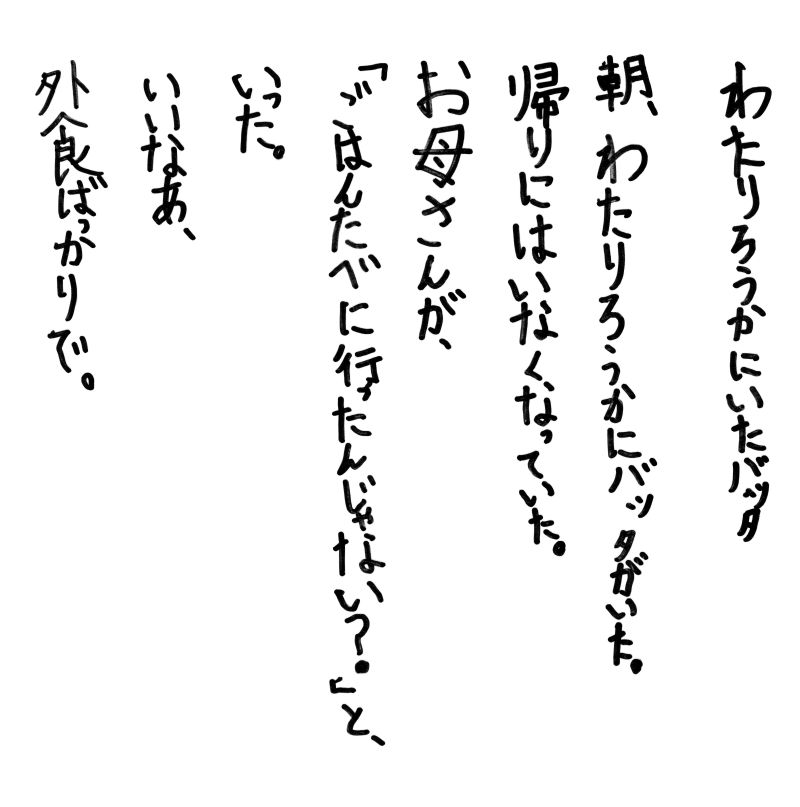 わたりろうかにいたバッタ
朝、わたりろうかにバッタがいた。
帰りにはいなくなっていた。
お母さんが、
「ごはんたべに行ったんじゃない?」と、
いった。
いいなあ、
外食ばっかりで。